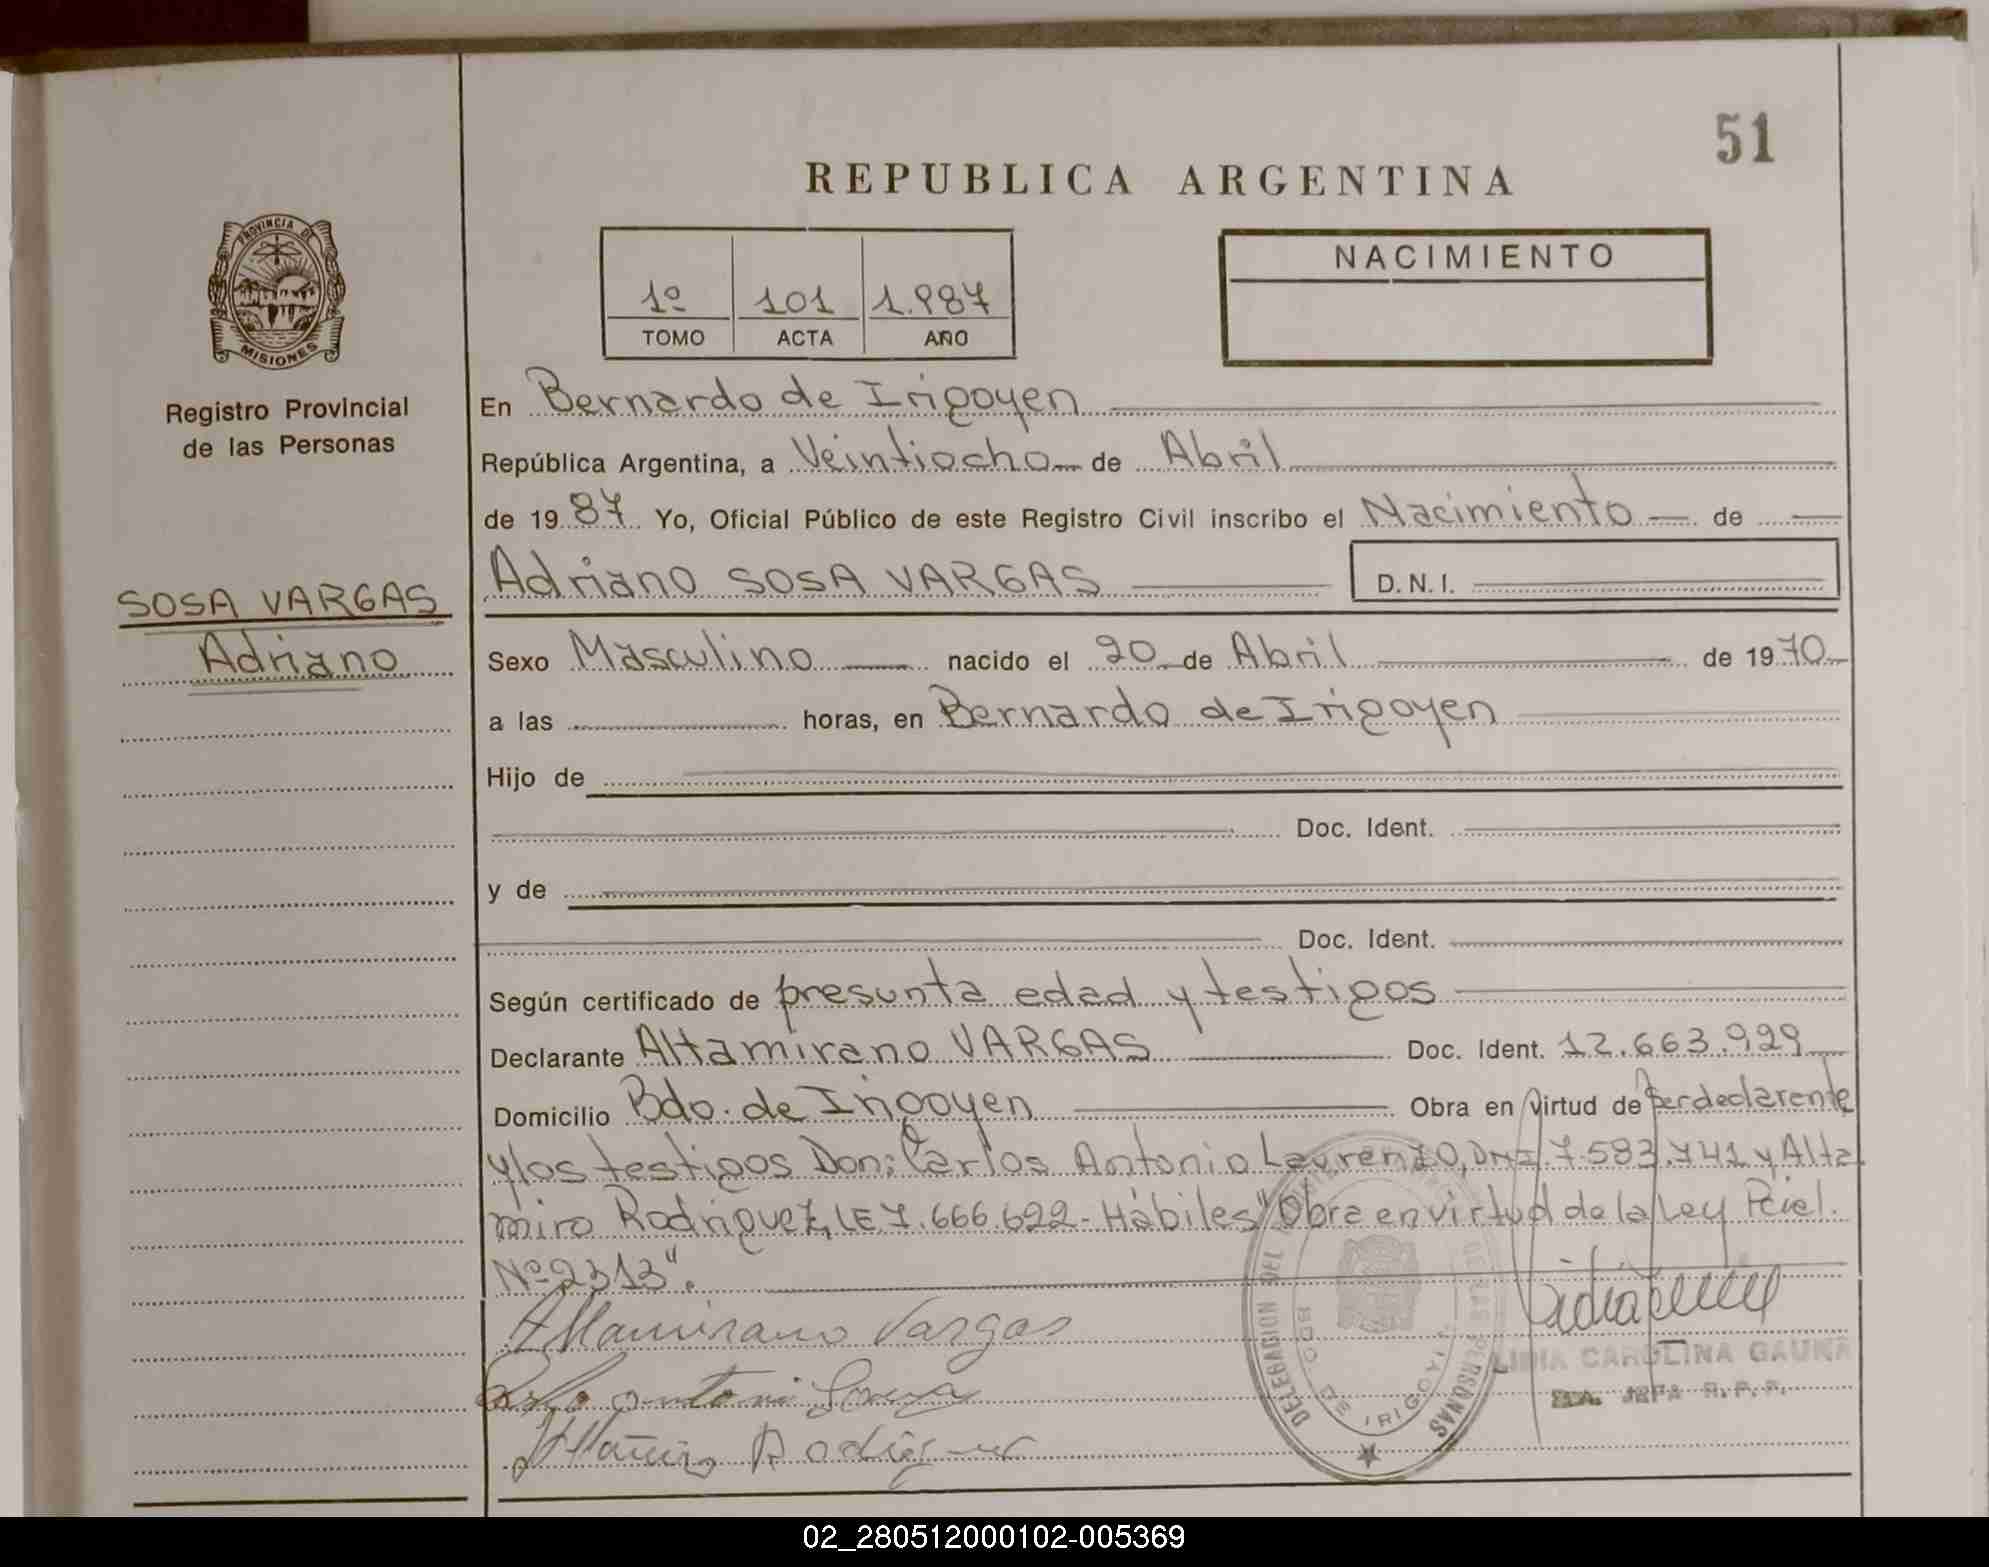 51
REPUBLICA ARGENTINA
PROVINCIA DE
MISIONES
Registro Provincial
de las Personas
1º 101 1.987
TOMO ACTA AÑO
NACIMIENTO
En Bernardo de Irigoyen
República Argentina, a Veintiocho de Abril
de 19 87 Yo, Oficial Público de este Registro Civil inscribo el Nacimiento de
SOSA VARGAS
Adriano
Adriano SOSA VARGAS D.N.I.
Sexo Masculino nacido el 20 de Abril de 1970
a las horas, en Bernardo de Irigoyen
Hijo de
Doc. Ident.
y de
Doc. Ident.
Según certificado de presunta edad y testigos
Declarante Altamirano VARGAS Doc. Ident. 12.663.929
Domicilio Bdo. de Irigoyen Obra en virtud de ser declarente
y los testigos Don: Carlos Antonio Laurenzo, DNI. 7.583.741 y Alta
miro Rodriguez, LE 7.666.622 - Hábiles "Obra en virtud de la Ley Pciel.
Nº 2313".
Altamirano Vargas
Altamiro Rodriguez
DELEGACION DEL REGISTRO PROVINCIAL DE LAS PERSONAS
BDO DE IRIGOYEN
LIDIA CAROLINA GAUNA
JEFA R.P.P.
02_280512000102-005369